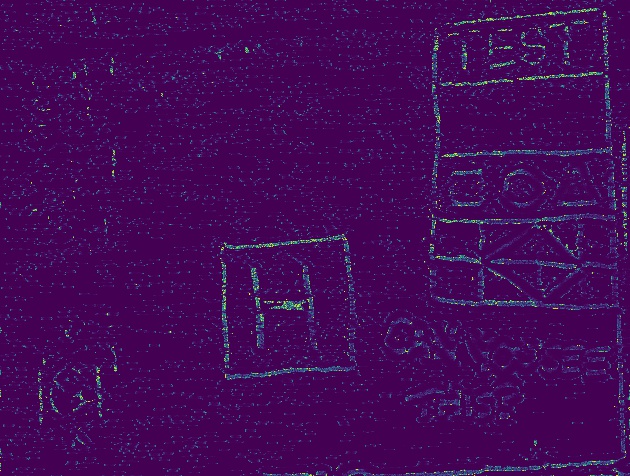 TEST
H
CAN YOU SEE
THIS?